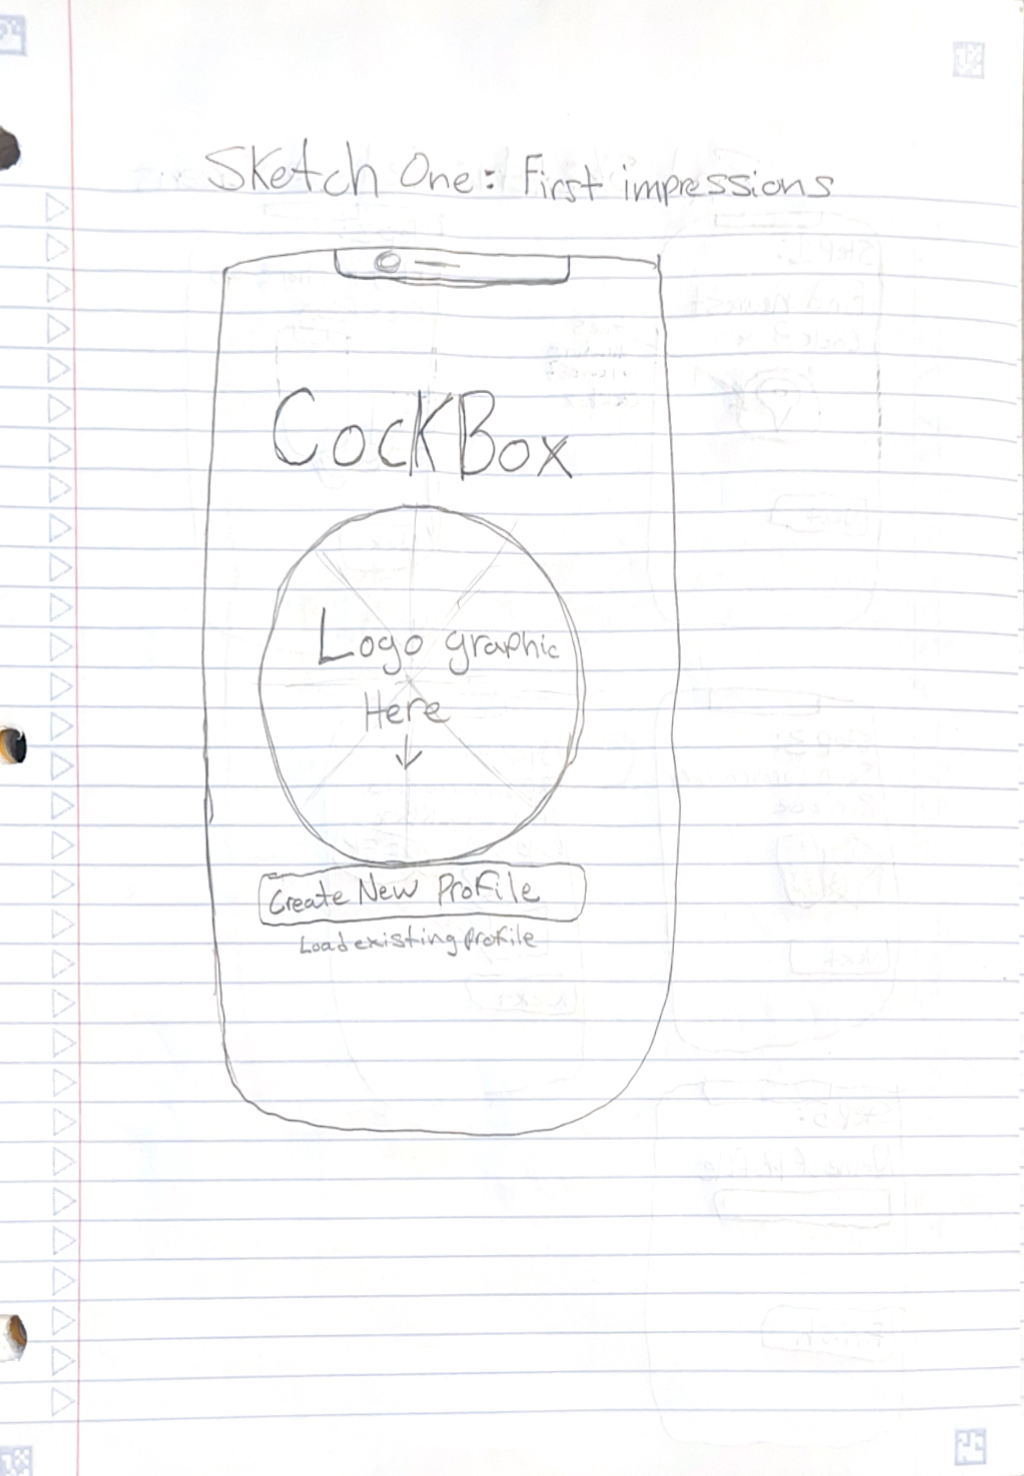 Sketch One: First impressions
CockBox
Logo graphic
Here
Create New Profile
Load existing profile